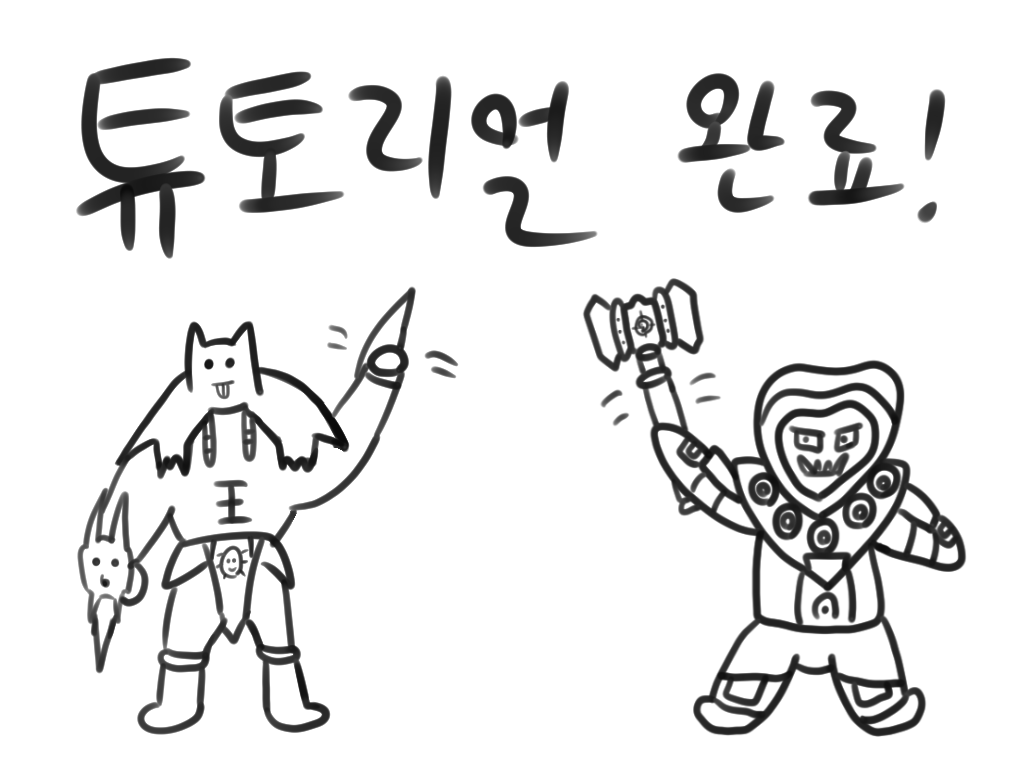 튜토리얼 완료!